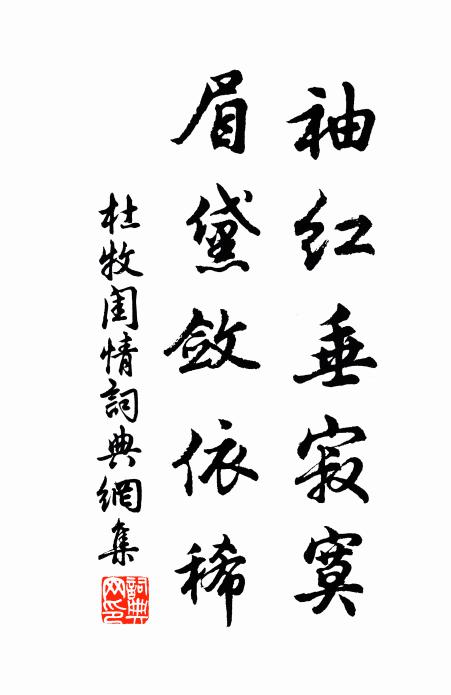 袖红垂寂寞
眉黛斂依稀
杜牧閨情詞典網集
詞典网印